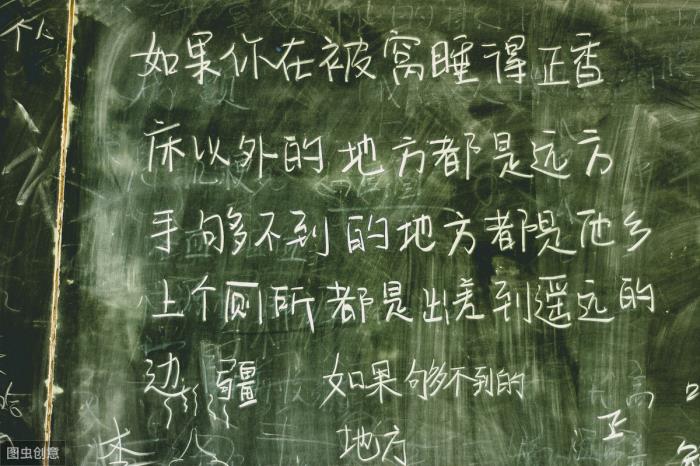 个人
如果你在被窝睡得正香
床以外的地方都是远方
手够不到的地方都是他乡
上个厕所都是出差到遥远的
边疆 如果够不到的
地方
正
李
图虫创意